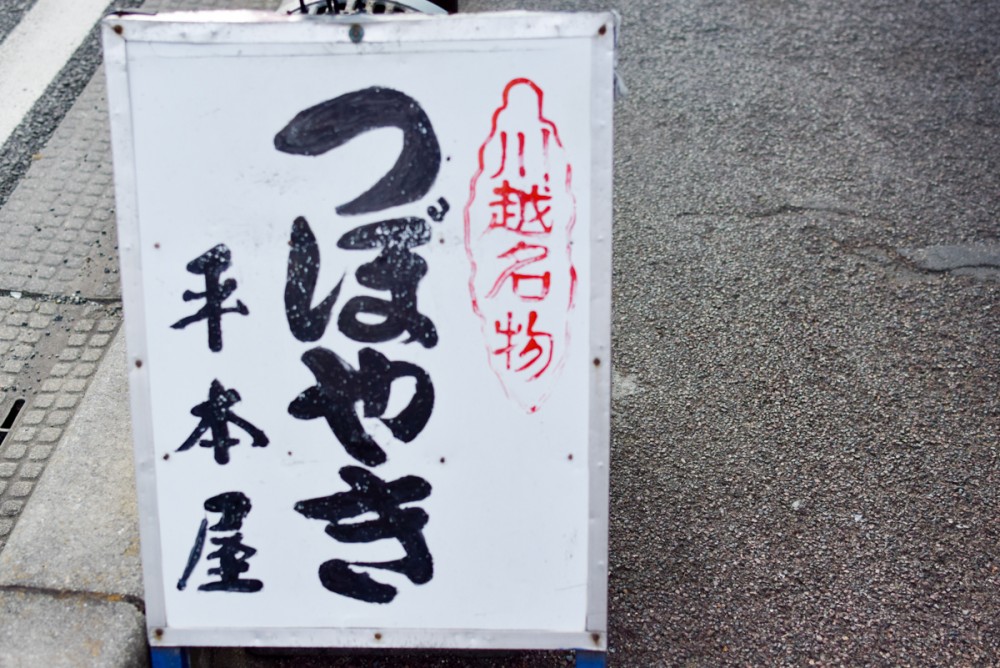 川越名物
つぼやき
平本屋